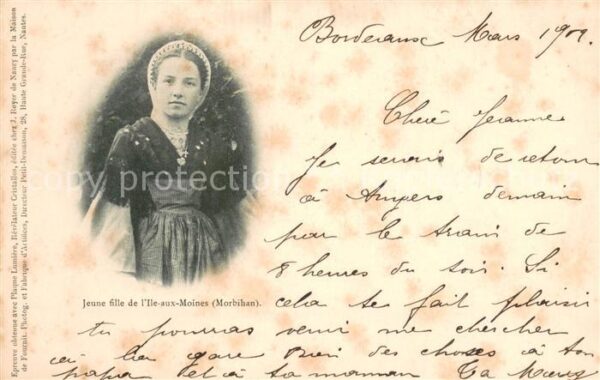 Epreuve obtenue avec Plaque Lumière, Révélateur Cristallos, éditée chez J. Royer de Nancy par la Maison
de Fournit. Photog. et Fabrique d'Artifices, Directeur Petit-Demaison, 28, Haute Grande-Rue, Nantes.
Bordeaux Mars 1901.
Chère Jeanne
Je serais de retour
à Angers demain
par le train de
8 heures du soir. Si
cela te fait plaisir
tu pourras venir me chercher
à la gare Bien des choses à ton
papa et à ta maman Ta
Jeune fille de l'Ile-aux-Moines (Morbihan).
copy protection